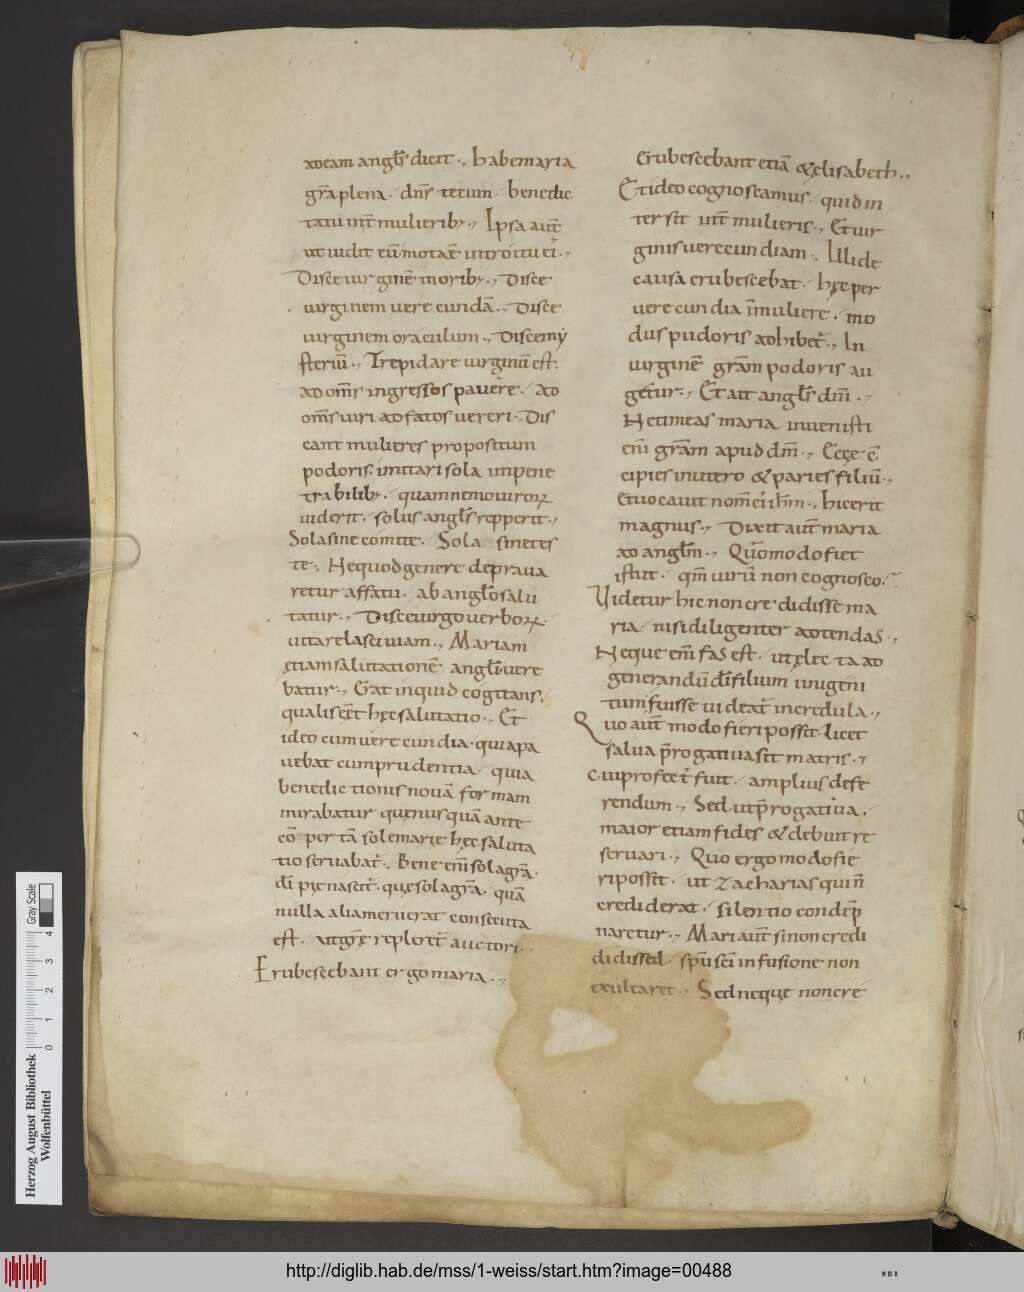 adeam angl̅s dicit ·, habe maria
gr̅a plena · dn̅s tecum · benedic
ta tu int̅ mulierib; ·, Ipsa aut̅
ut uidit eū · mota ē introitu ei' ·,
Disce uirginē morib; ·, Disce
uirginem uerecundā ·, Disce
uirginem oraculum ·, Disce my
steriū ·, Trepidare uirginū est ·
ad om̅s ingressos pauere · ad
om̅s uiri adfatos uereri · Dis
cant mulieres propositum
podoris · imitari sola inpene
trabilib; · quam nemo uiroꝝ
uiderit · solus angl̅s repperit ·,
Sola sine comite · Sola sine tes
te ·, Ne quo degenere depraua
retur affatu · ab angl̅o salu
tatur ·, Disce uirgo uerboꝝ
uitare lasciuiam ·, Mariam
etiam salutationē angl̅i uere
batur ·, Erat inquid cogitans ·
qualis eēt hęc salutatio ·, Et
ideo cum uerecundia · quia pa
uebat cum prudentia · quia
benedictionis nouā formam
mirabatur quę nusquā ante
eō per tā sole marię hęc saluta
tio seruabat̅ ·, Bene em̅ sola gr̅a ·
di̅ plę nascit̅ · quę sola gr̅a · quā
nulla alia meruerat consecuta
est · ut gr̅ę repleret̅ auctori ·
Erubescebant ergo maria ·,
erubescebant etiā & elisabeth ·,
Et ideo cognoscamus · quid in
ter sit int̅ mulieris ·, Et uir
ginis uerecundiam · Illi de
causa erubescebat · hęc per
uerecundia · In muliere · mo
dus pudoris adhibet̅ ·, In
uirginē gr̅am podoris au
getur ·, Et ait angl̅s dn̅i ·,
Ne timeas maria inuenisti
em̅ gr̅am apud dm̅ ·, Ecce c̅
cipies in utero & paries filiū ·,
et uocauit nom̅ ei' ih̅m ·, hic erit
magnus ·, Dixit aut̅ maria
ad angl̅m ·, Quomodo fiet
istut · qm̅ uirū non cognosco ·
Uidetur hic non credidisse ma
ria · nisi diligenter adtendas ·,
Neque em̅ fas est · ut electa ad
generandū di̅ filium unigeni
tum fuisse uideat̅ incredula ·,
Quo aut̅ modo fieri possit · licet
salua p̅rogatiua sit matris ·,
cui profecto fuit · amplius defe
rendum ·, Sed ut p̅rogatiua ·
maior etiam fides & debuit re
seruari ·, Quo ergo modo fie
ri possit · ut zacharias qui n̅
crediderat · silentio condep̅
naretur ·, Mari aut̅ si non credi
didissed · sp̅u sc̅i infusione non
exultaret ·, Sed neque non cre
Herzog August Bibliothek
Wolfenbüttel
0 1 2 3 4
Gray Scale
http://diglib.hab.de/mss/1-weiss/start.htm?image=00488